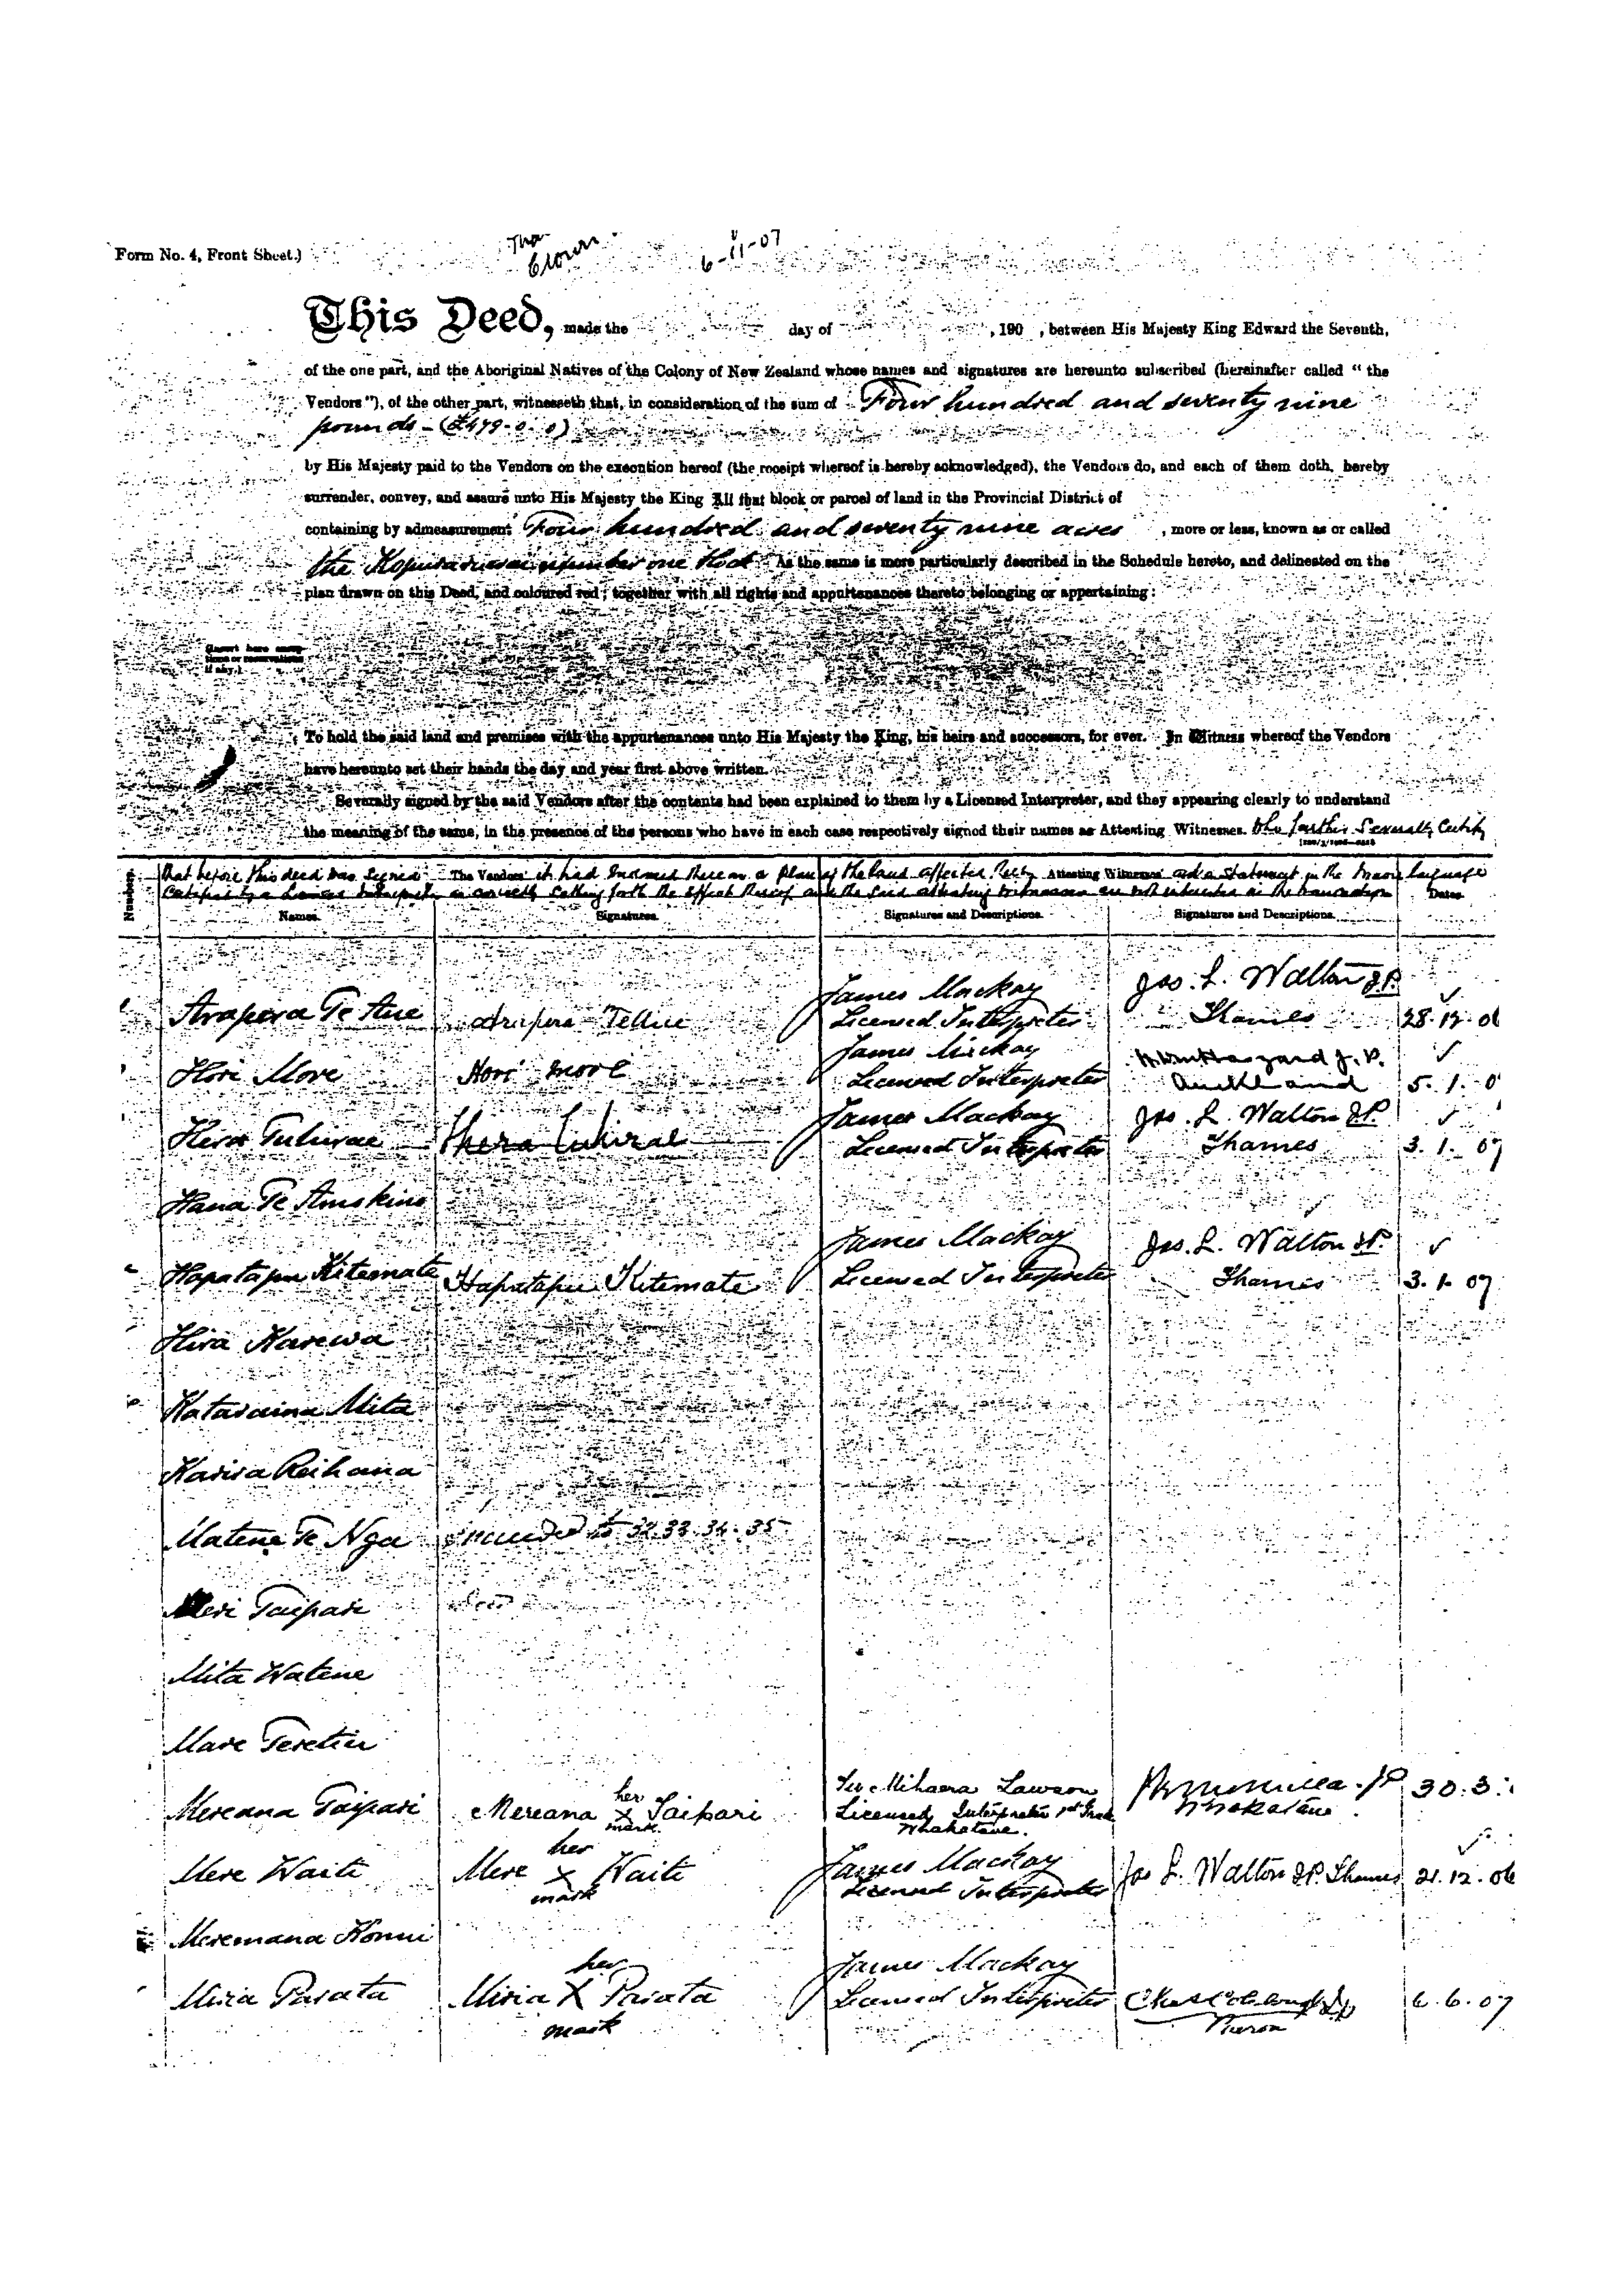 Form No. 4, Front Sheet.)
Crown
6-11-07
This Deed, made the day of , 190 , between His Majesty King Edward the Seventh,
of the one part, and the Aboriginal Natives of the Colony of New Zealand whose names and signatures are hereunto subscribed (hereinafter called “ the
Vendors ”), of the other part, witnesseth that, in consideration of the sum of Four hundred and seventy nine
pounds - (£479-0-0)
by His Majesty paid to the Vendors on the execution hereof (the receipt whereof is hereby acknowledged), the Vendors do, and each of them doth, hereby
surrender, convey, and assure unto His Majesty the King All that block or parcel of land in the Provincial District of
containing by admeasurement Four hundred and seventy nine acres , more or less, known as or called
the number one As the same is more particularly described in the Schedule hereto, and delineated on the
plan drawn on this Deed, and coloured red ; together with all rights and appurtenances thereto belonging or appertaining :
(Insert here
or reservations
if any.)
To hold the said land and premises with the appurtenances unto His Majesty the King, his heirs and successors, for ever. In Witness whereof the Vendors
have hereunto set their hands the day and year first above written.
Severally signed by the said Vendors after the contents had been explained to them by a Licensed Interpreter, and they appearing clearly to understand
the meaning of the same, in the presence of the persons who have in each case respectively signed their names as Attesting Witnesses. Who further Severally Certify
that before this deed was signed The Vendors it had Indorsed thereon a plan of the land affected Attesting Witnesses and a Statement in the Maori language
Certified by a Licensed Interpreter as correctly setting forth the effect thereof and the said attesting witnesses are not interested in the transaction Dates.
Numbers.
Names. Signatures. Signatures and Descriptions. Signatures and Descriptions.
James Mackay Jos. L. Walton J.P.
Arapera Te Aue Arapera TeAue Licensed Interpreter Thames 28.12.06
James Mackay J.P.
Hori More Hori more Licensed Interpreter Auckland 5.1.0
James Mackay Jos. L. Walton J.P.
Hera Tuhirae Hera Tuhirae Licensed Interpreter Thames 3.1.07
Hana Te
James Mackay Jos. L. Walton J.P.
Hapatapu Kitemate Hapatapu Kitemate Licensed Interpreter Thames 3.1.07
Hira Karewa
Kataraina Mita
Karira Reihana
Matene Te Nga 32.33.34.35
Meri Taipari
Mita Watene
Mare Teretiu
her Mihaera Lawson JP
Mereana Taipari Mereana X Taipari Licensed Interpreter 1st Grade Whakatane 30.3.
mark Whakatane.
her James Mackay
Mere Waiti Mere X Waiti Licensed Interpreter Jos L. Walton J.P. Thames 21.12.06
mark
Meremana Konui
her James Mackay
Miria Parata Miria X Parata Licensed Interpreter 6.6.07
mark